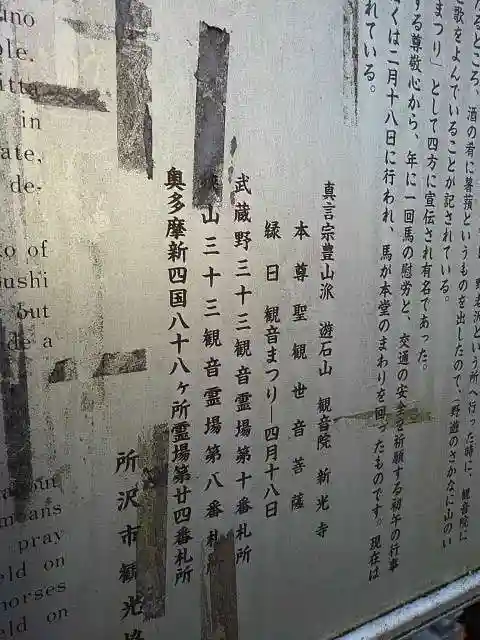 たるところ、酒の肴に薯蕷というものを出したので、(野遊のさかなに山のい
と歌をよんでいることが記されている。
まつり」として四方に宣伝され有名であった。
する尊敬心から、年に一回馬の慰労と、交通の安全を祈願する初午の行事
くは二月十八日に行われ、馬が本堂のまわりを回ったものです。現在は
れている。
真言宗豊山派 遊石山 観音院 新光寺
本尊聖観世音菩薩
縁日 観音まつり―四月十八日
武蔵野三十三観音霊場第十番札所
山三十三観音霊場第八番札所
奥多摩新四国八十八ヶ所霊場第廿四番札所
所沢市観光協
uno
ple.
itta
in
ate,
de-
to of
oushi
out
de a
out
means
pray
eld on
horses
eld on